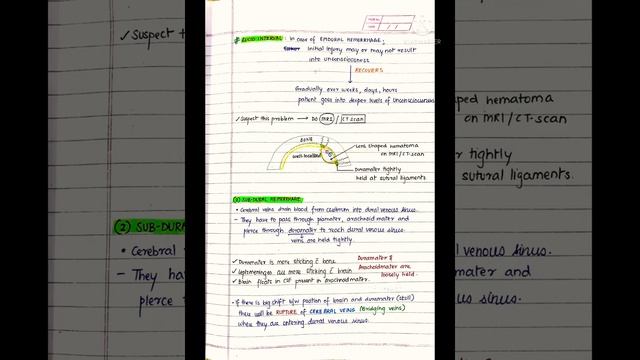 * LUCID INTERVAL : In case of EPIDURAL HEMORRHAGE,
Initial injury may or may not result
into unconsciousness
RECOVERS
Gradually over weeks, days, hours
patient goes into deeper levels of unconsciousness
✓ Suspect this problem → DO MRI / CT-SCAN
BONE
Lens shaped hematoma
on MRI/CT-SCAN
Duramater tightly
held at sutural ligaments
(2) SUB-DURAL HEMORRHAGE
• Cerebral veins drain blood from cerebrum into dural venous sinus.
- They have to pass through piamater, arachnoid mater and
pierce through duramater to reach dural venous sinus.
veins are held tightly.
✓ Duramater is more sticking c̄ bone
✓ Leptomeninges are more sticking c̄ brain
✓ Brain floats in CSF present in arachnoidmater.
Duramater &
Arachnoidmater are
loosely held.
• If there is big shift b/w position of brain and duramater (skull)
there will be RUPTURE of CEREBRAL VEINS (Bridging veins)
when they are entering dural venous sinus.
✓ Suspect t
(2) SUB-DURA
• Cerebral
- They hav
pierce t
ped hematoma
on MRI/CT-SCAN
r tightly
sutural ligaments.
venous sinus.
mater and
us sinus.